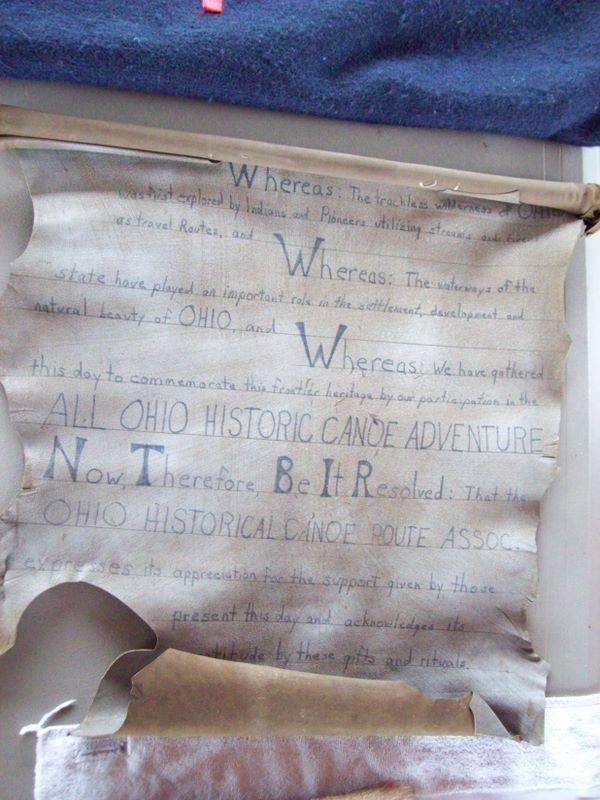 Whereas: The trackless wilderness of OHIO
was first explored by Indians and Pioneers utilizing streams and rivers
as travel Routes, and
Whereas: The waterways of the
state have played an important role in the settlement, development and
natural beauty of OHIO, and
Whereas: We have gathered
this day to commemorate this frontier heritage by our participation in the
ALL OHIO HISTORIC CANOE ADVENTURE
Now, Therefore, Be It Resolved: That the
OHIO HISTORICAL CANOE ROUTE ASSOC.
expresses its appreciation for the support given by those
present this day and acknowledges its
by these gifts and rituals.